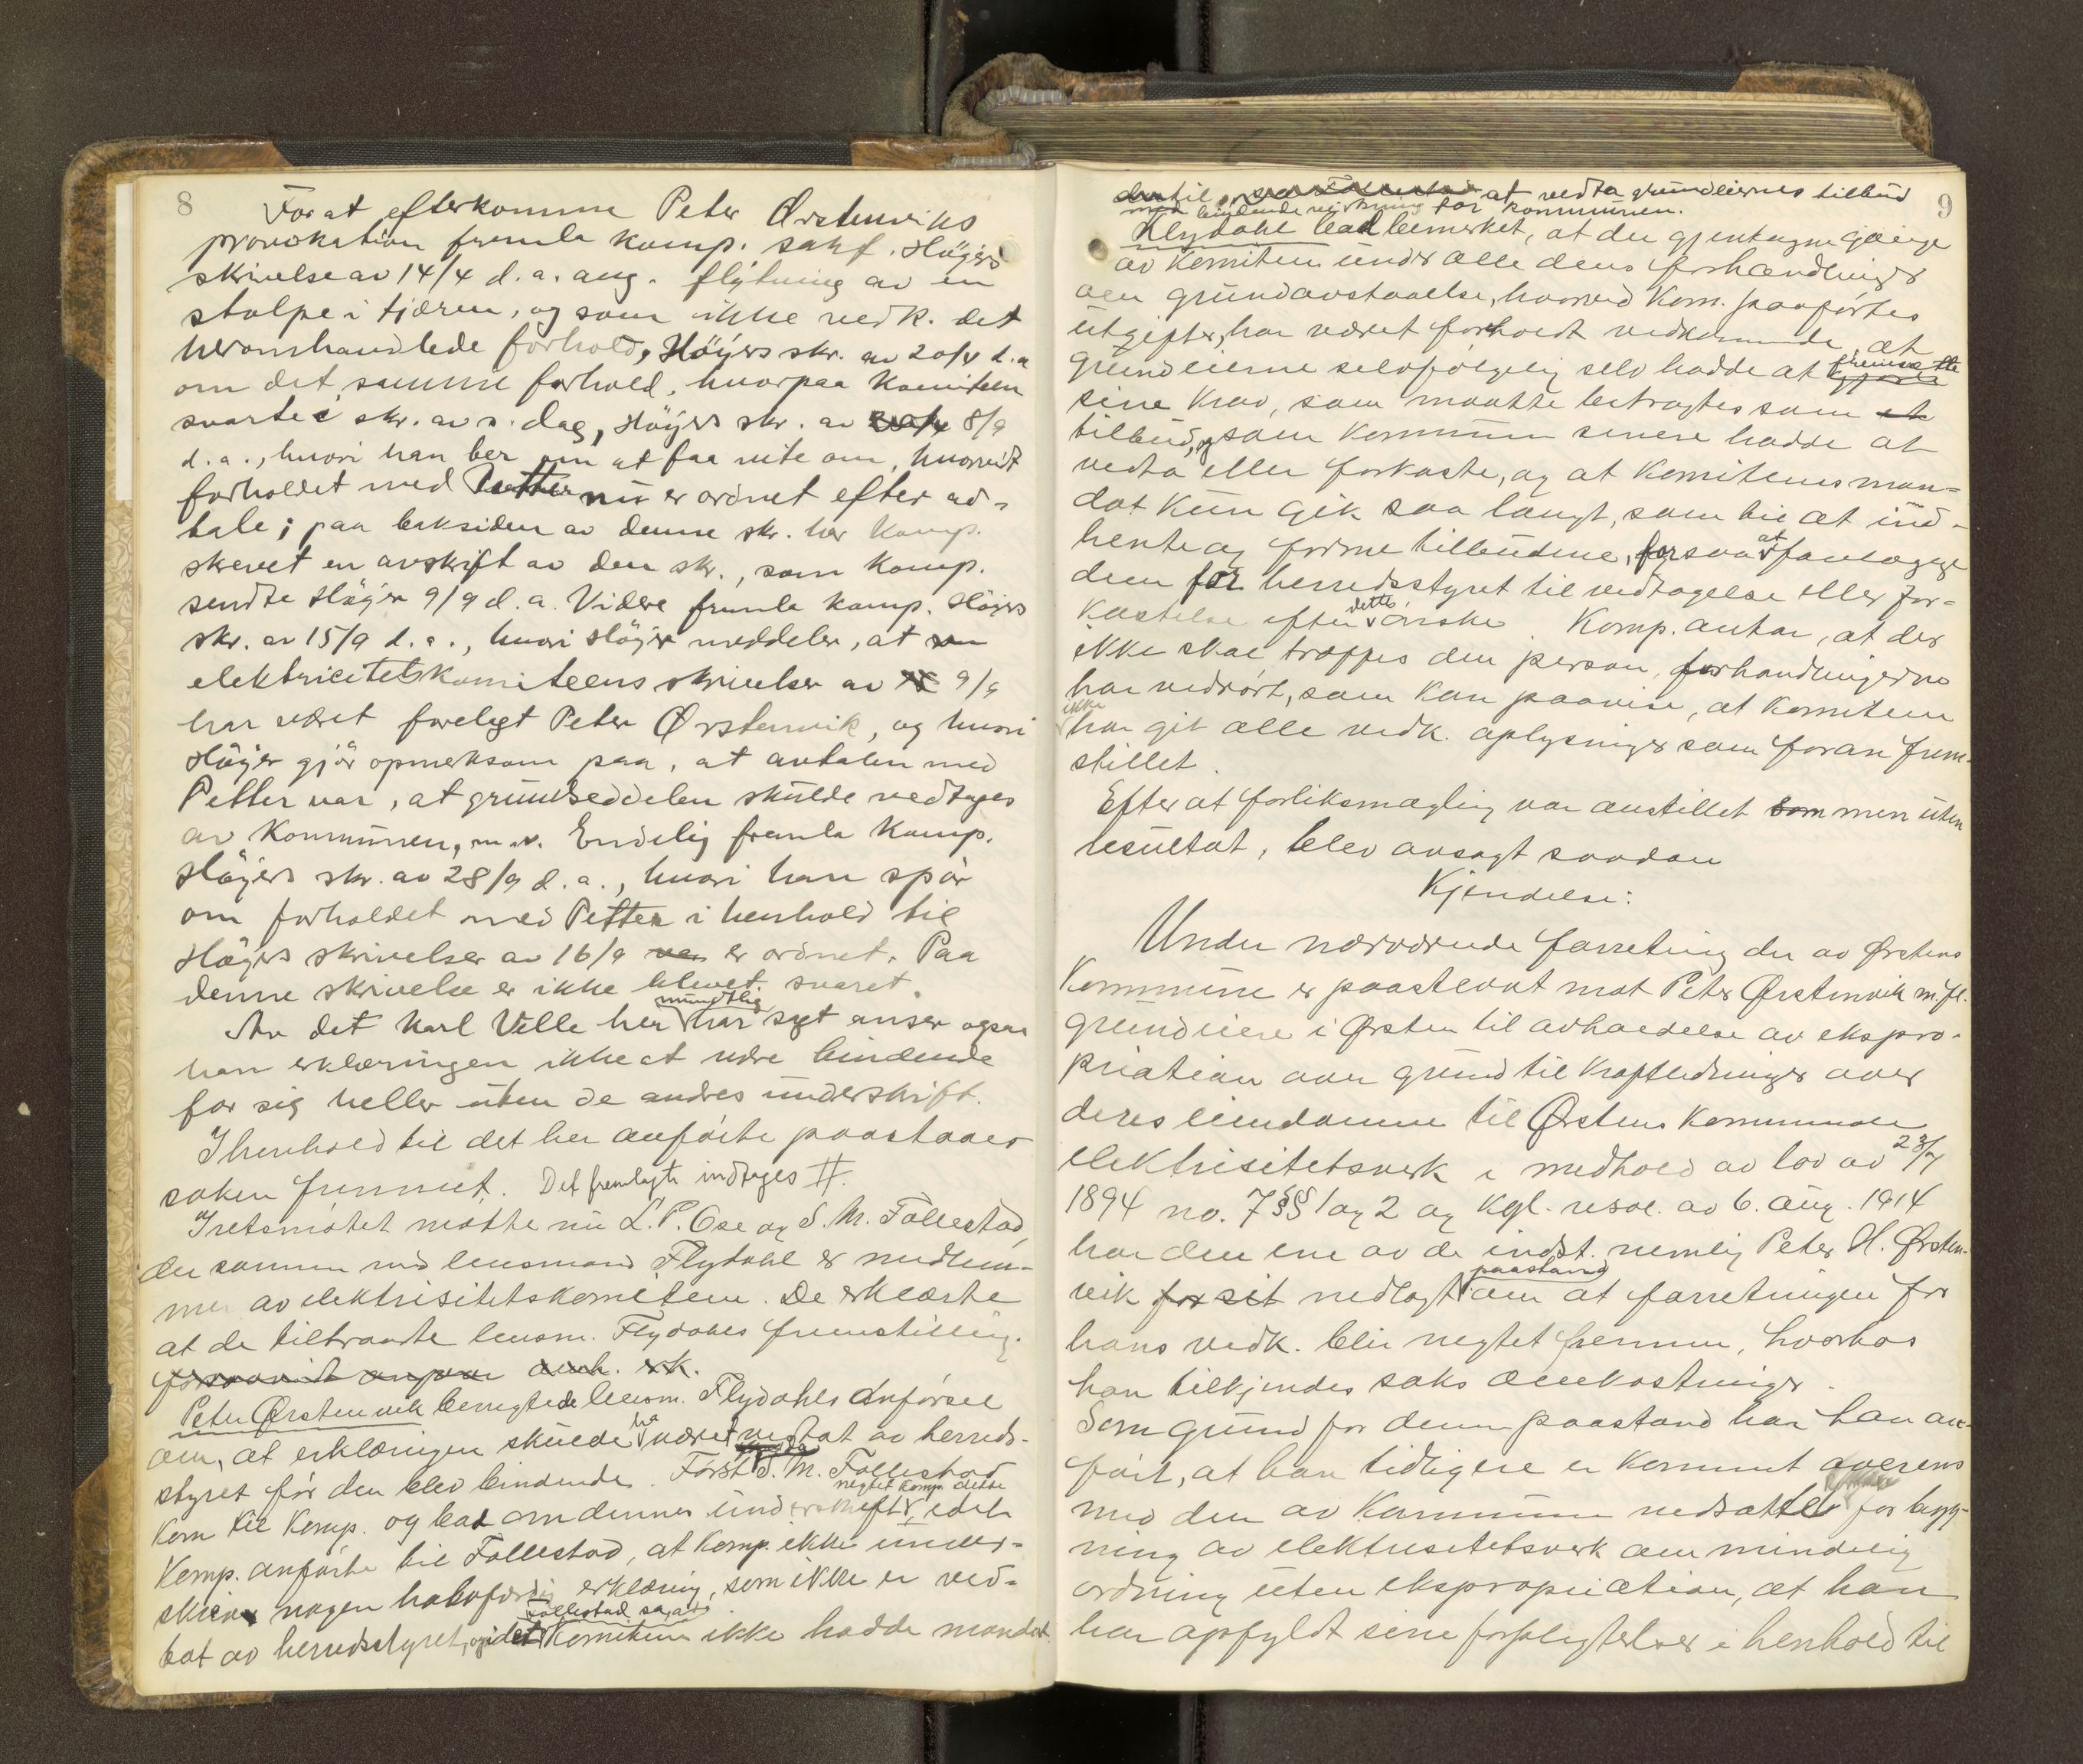 8
For at efterkomme Peter Ørstenviks
provokation fremla komp. sakf. Höyers
skrivelse av 14/4 d. a. ang. flytning av en
stolpe i fjæren, og som ikke vedk. det
heromhandlede forhold, Höyers skr. av 20/4 d. a
om det samme forhold, hvorpaa komiteen
svarte i skr. av s. dag, Höyers skr. av 8/9
d. a., hvori han ber om at faa vite om, hvorvidt
forholdet med Petter nu er ordnet efter av-
tale; paa baksiden av denne skr. har komp.
skrevet en avskrift av den skr., som komp.
sendte Höyer 9/9 d. a. Videre fremla komp. Höyers
skr. av 15/9 d. a., hvori Höyer meddeler, at
elektricitetskomiteens skrivelse av 9/9
har været forelagt Peter Ørstenvik, og hvori
Höyer gjör opmerksom paa, at avtalen med
Petter var, at grundseddelen skulde vedtages
av kommunen, m. v. Endelig fremla komp.
Höyers skr. av 28/9 d. a., hvori han spör
om forholdet med Petter i henhold til
Höyers skrivelse av 16/9 er ordnet. Paa
denne skrivelse er ikke blevet svaret.
Av det Karl Velle her mundtlig har sagt anser ogsaa
han erklæringen ikke at være bindende
for sig heller uten de andres underskrift.
I henhold til det her anförte paastaaes
saken fremmet. Det fremlagte indtages #.
I retsmötet mötte nu L. P. Ose og S. M. Follestad,
der sammen med lensmand Flydahl er medlem-
mer av elektrisitetskomiteen. De erklærte
at de tiltraadte lensm. Flydahls fremstilling.
Peter Ørstenvik benegtede lensm. Flydahls anförsel
om, at erklæringen skulde ha været vedtat av herreds-
styret för den blev bindende. Först da S. M. Follestad
kom til komp. og bad om dennes underskrift negtet komp. dette, idet
komp. anförte til Follestad, at komp. ikke under-
skrev nogen halvfærdig erklæring, som ikke er ved-
tat av herredsstyret, og idet Follestad sa, at komiteen ikke hadde mandat
9
til at vedta grundeiernes tilbud
med bindende virkning for kommunen.
Flydahl bad bemerket, at der gjentagne gange
av komiteen under alle dens forhandlinger
om grundavstaaelse, hvorved kom. paaförtes
utgifter, har været forholdt vedkommende, at
grundeierne selvfölgelig selv hadde at fremsætte
sine krav, som maatte betragtes som
tilbud, og som kommunen senere hadde at
vedta eller forkaste, og at komiteens man-
dat kun gik saa langt, som til at ind-
hente og forme tilbudene, for saa at forelægge
dem for herredsstyret til vedtagelse eller for-
kastelse efter dettes önske. Komp. antar, at der
ikke skal træffes den person, forhandlingerne
har vedrört, som kan paavise, at komiteen
ikke har git alle vedk. oplysninger som foran frem-
stillet.
Efter at forliksmægling var anstillet men uten
resultat, blev avsagt saadan
Kjendelse:
Under nærværende forretning der av Ørstens
kommune er paastevnt mot Peter Ørstenvik m. fl.
grundeiere i Ørsten til avholdelse av ekspro-
priation over grund til kraftledninger over
deres eiendomme til Ørstens kommunale
elektrisitetsverk i medhold av lov av 23/7
1894 no. 7 §§ 1 og 2 og kgl. resol. av 6. aug. 1914
har den ene av de indst. nemlig Peter H. Ørsten-
vik nedlagt paastand om at forretningen for
hans vedk. blir negtet fremme, hvorhos
han tilkjendes saks omkostninger.
Som grund for denne paastand har han an-
fört, at han tidligere er kommet overens
med den av kommunen nedsatte komite for bygg-
ning av elektrisitetsverk om mindelig
ordning uten ekspropriation, at han
har opfyldt sine forpligtelser i henhold til